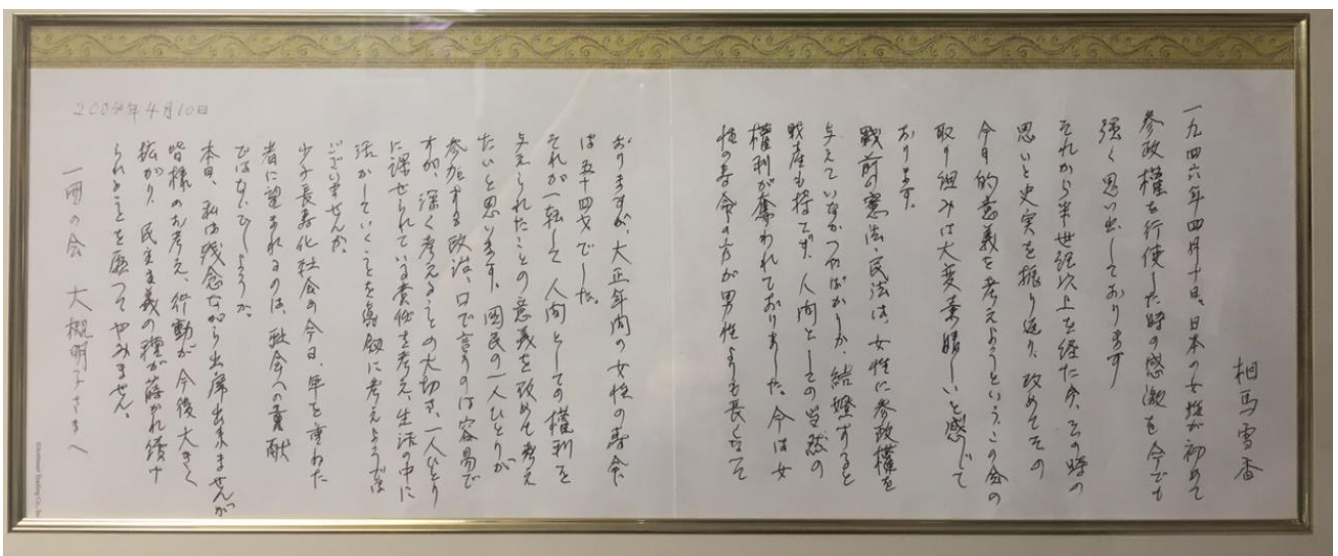 相馬雪香
一九四六年四月十日、日本の女性が初めて
参政権を行使した時の感激を今でも
強く思い出しております
それから半世紀以上を経た今、その時の
思いと史実を振り返り、改めてその
今日的意義を考えようという、この会の
取り組みは大変素晴しいと感じて
おります。
戦前の憲法・民法は、女性に参政権を
与えていなかったばかりか、結婚すると
財産も持てず、人間としての当然の
権利が奪われておりました。今は女
性の寿命の方が男性よりも長くなって
おりますが、大正年間の女性の寿命
は五十四才でした。
それが一転して人間としての権利を
与えられたことの意義を改めて考え
たいと思います。国民の一人ひとりが
参加する政治、口で言うのは容易で
すが、深く考えることの大切さ、一人ひとり
に課せられている責任を考え、生活の中に
活かしていくことを真剣に考えようでは
ございませんか。
少子長寿化社会の今日、年を重ねた
者に望まれるのは、社会への貢献
ではないでしょうか。
本日、私は残念ながら出席出来ませんが
皆様のお考え、行動が今後大きく
拡がり、民主主義の種が蒔かれ続け
られることを願ってやみません。
2004年4月10日
一冊の会 大槻明子さまへ